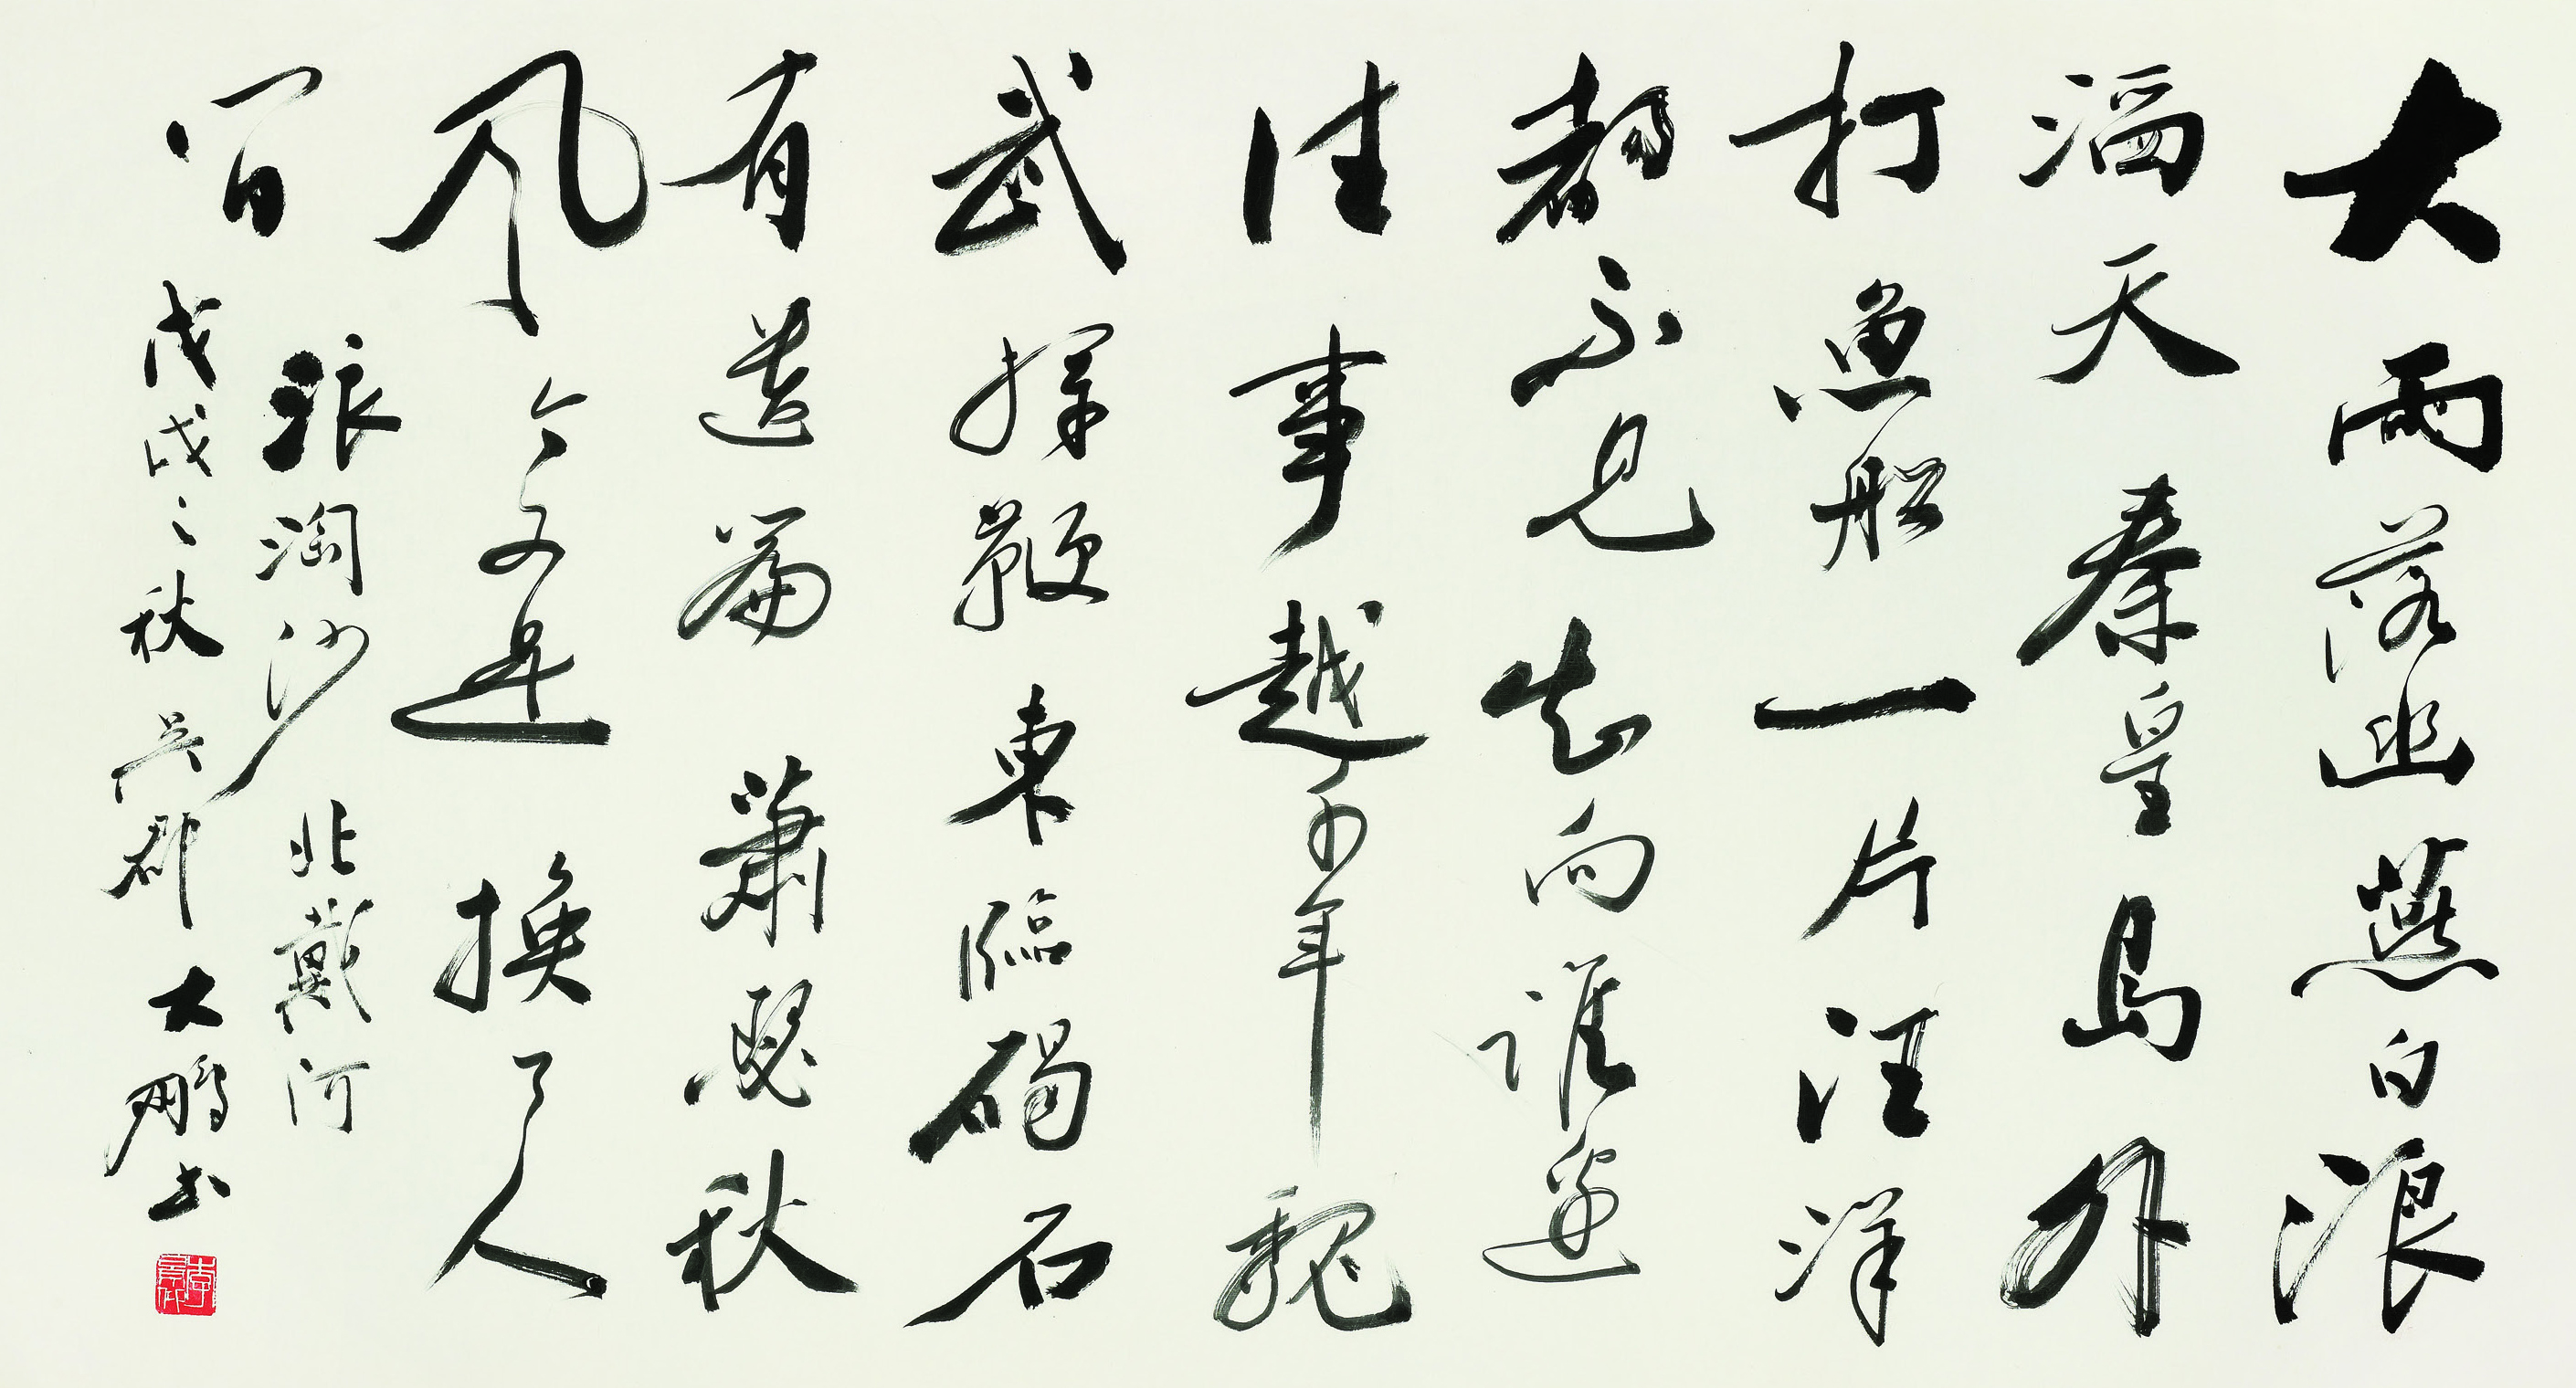 大雨落幽燕白浪
滔天秦皇島外
打魚船一片汪洋
都不見知向誰邊
往事越千年魏
武揮鞭東臨碣石
有遺篇蕭瑟秋
风今又是換了人
间
浪淘沙 北戴河
戊戌之秋 吳郡 大鵬书